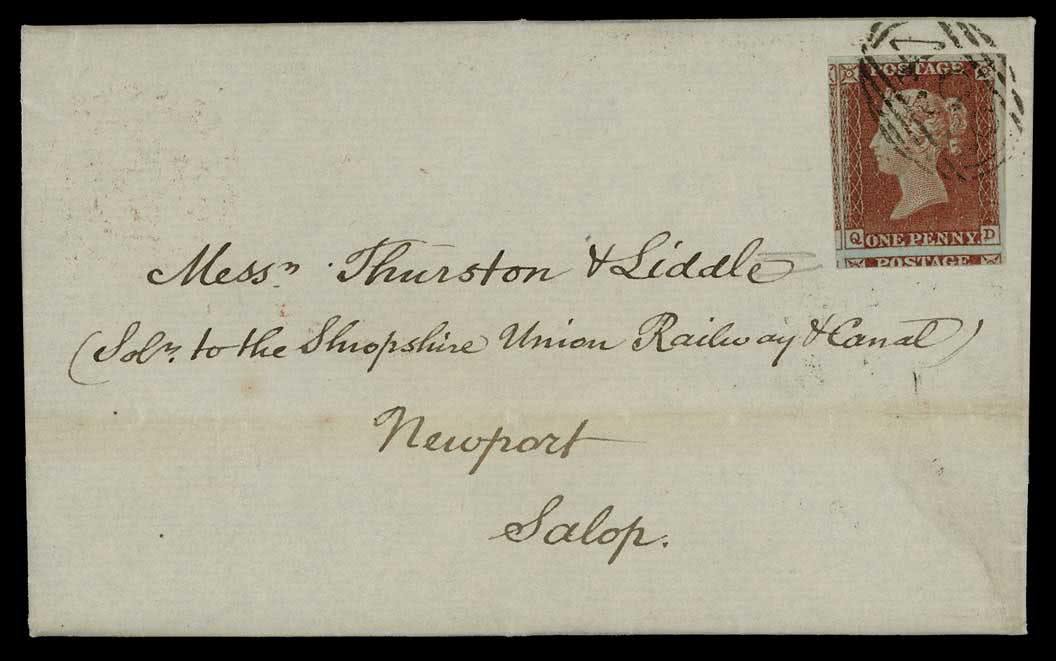 POSTAGE
Q ONE PENNY D
POSTAGE
Messrs. Thurston & Liddle
(Solrs. to the Shropshire Union Railway & Canal)
Newport
Salop.